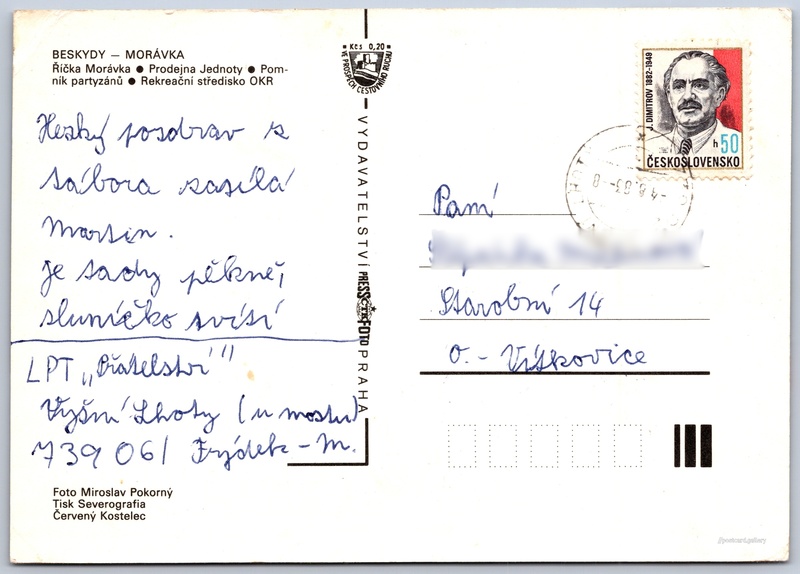 BESKYDY — MORÁVKA
Říčka Morávka ● Prodejna Jednoty ● Pom-
ník partyzánů ● Rekreační středisko OKR
Heský pozdrav z
tábora zasílá
Martin.
Je tady pěkně,
sluníčko svítí
LPT „Přátelství"
Vyšní Lhoty (u mostu)
739 06/ Frýdek-M.
Foto Miroslav Pokorný
Tisk Severografia
Červený Kostelec
Kčs 0,20
VE PROSPĚCH CESTOVNÍHO RUCHU
VYDAVATELSTVÍ PRESSFOTO PRAHA
J. DIMITROV 1882-1949
h 50
ČESKOSLOVENSKO
Paní
Starobní 14
O.-Vítkovice
//postcard.gallery